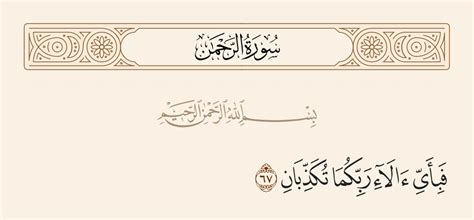 سُورَةُ الرَّحْمَٰن
بِسْمِ ٱللَّهِ ٱلرَّحْمَٰنِ ٱلرَّحِيمِ
فَبِأَيِّ ءَالَآءِ رَبِّكُمَا تُكَذِّبَانِ ٦٧